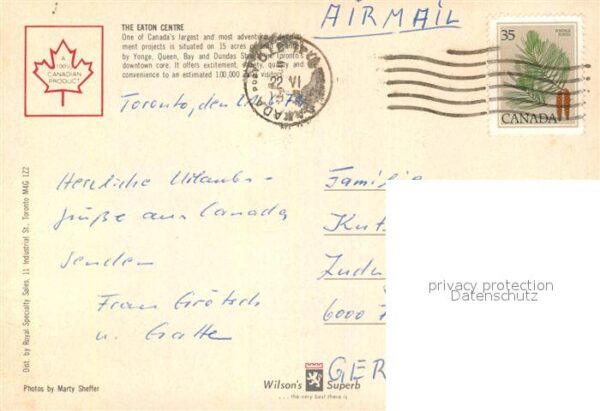 AIRMAIL
THE EATON CENTRE
One of Canada's largest and most adventurous
ment projects is situated on 15 acres
by Yonge, Queen, Bay and Dundas Streets in Toronto's
downtown core. It offers excitement, quality and
convenience to an estimated 100,000 visitors
A
100%
CANADIAN
PRODUCT
35
CANADA
TORONTO
22
VI
CANADA
Toronto, den
Herzliche Urlaubs-
grüße aus Canada
senden
Frau
u. Gatte
Familie
6000
GER
privacy protection
Datenschutz
Dist. by Royal Specialty Sales, 11 Industrial St. Toronto M4G 1Z2
Photos by Marty Sheffer
Wilson's Superb
...the very best there is